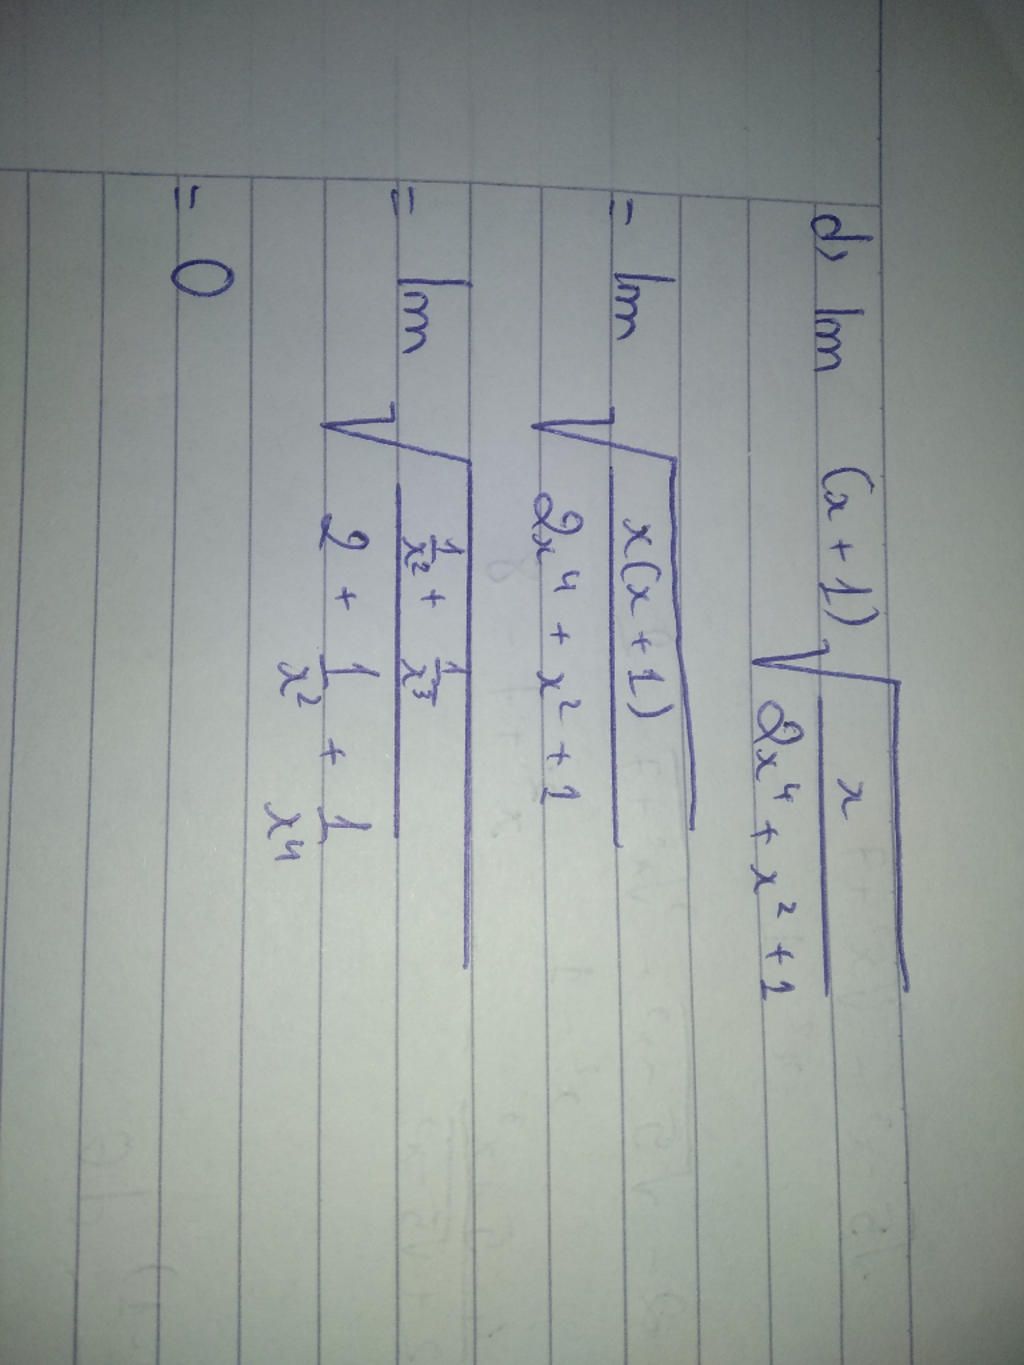 d) lim (x+1) √(x / (2x⁴ + x² + 1))
= lim √(x(x+1) / (2x⁴ + x² + 1))
= lim √((1/x² + 1/x³) / (2 + 1/x² + 1/x⁴))
= 0